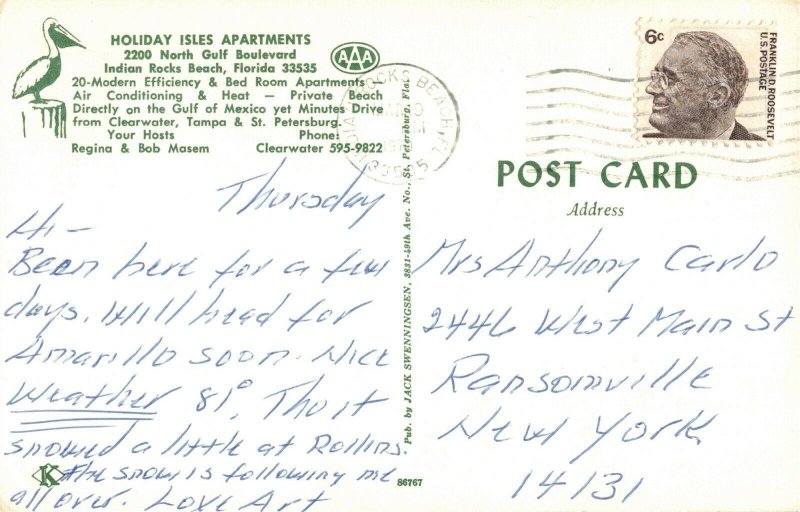 HOLIDAY ISLES APARTMENTS
2200 North Gulf Boulevard
Indian Rocks Beach, Florida 33535
20-Modern Efficiency & Bed Room Apartments
Air Conditioning & Heat — Private Beach
Directly on the Gulf of Mexico yet Minutes Drive
from Clearwater, Tampa & St. Petersburg.
Your Hosts Phone:
Regina & Bob Masem Clearwater 595-9822
AAA
6c
FRANKLIN D. ROOSEVELT
U.S. POSTAGE
POST CARD
Address
Thursday
Hi-
Been here for a few
days. Will head for
Amarillo soon. Nice
Weather 81°. Tho it
snowed a little at Rollins.
the snow is following me
all over. Love Art
K
Pub. by JACK SWENNINGSEN, 3821-49th Ave. No., St. Petersburg, Fla.
86767
Mrs Anthony Carlo
2446 West Main St
Ransomville
New York
14131